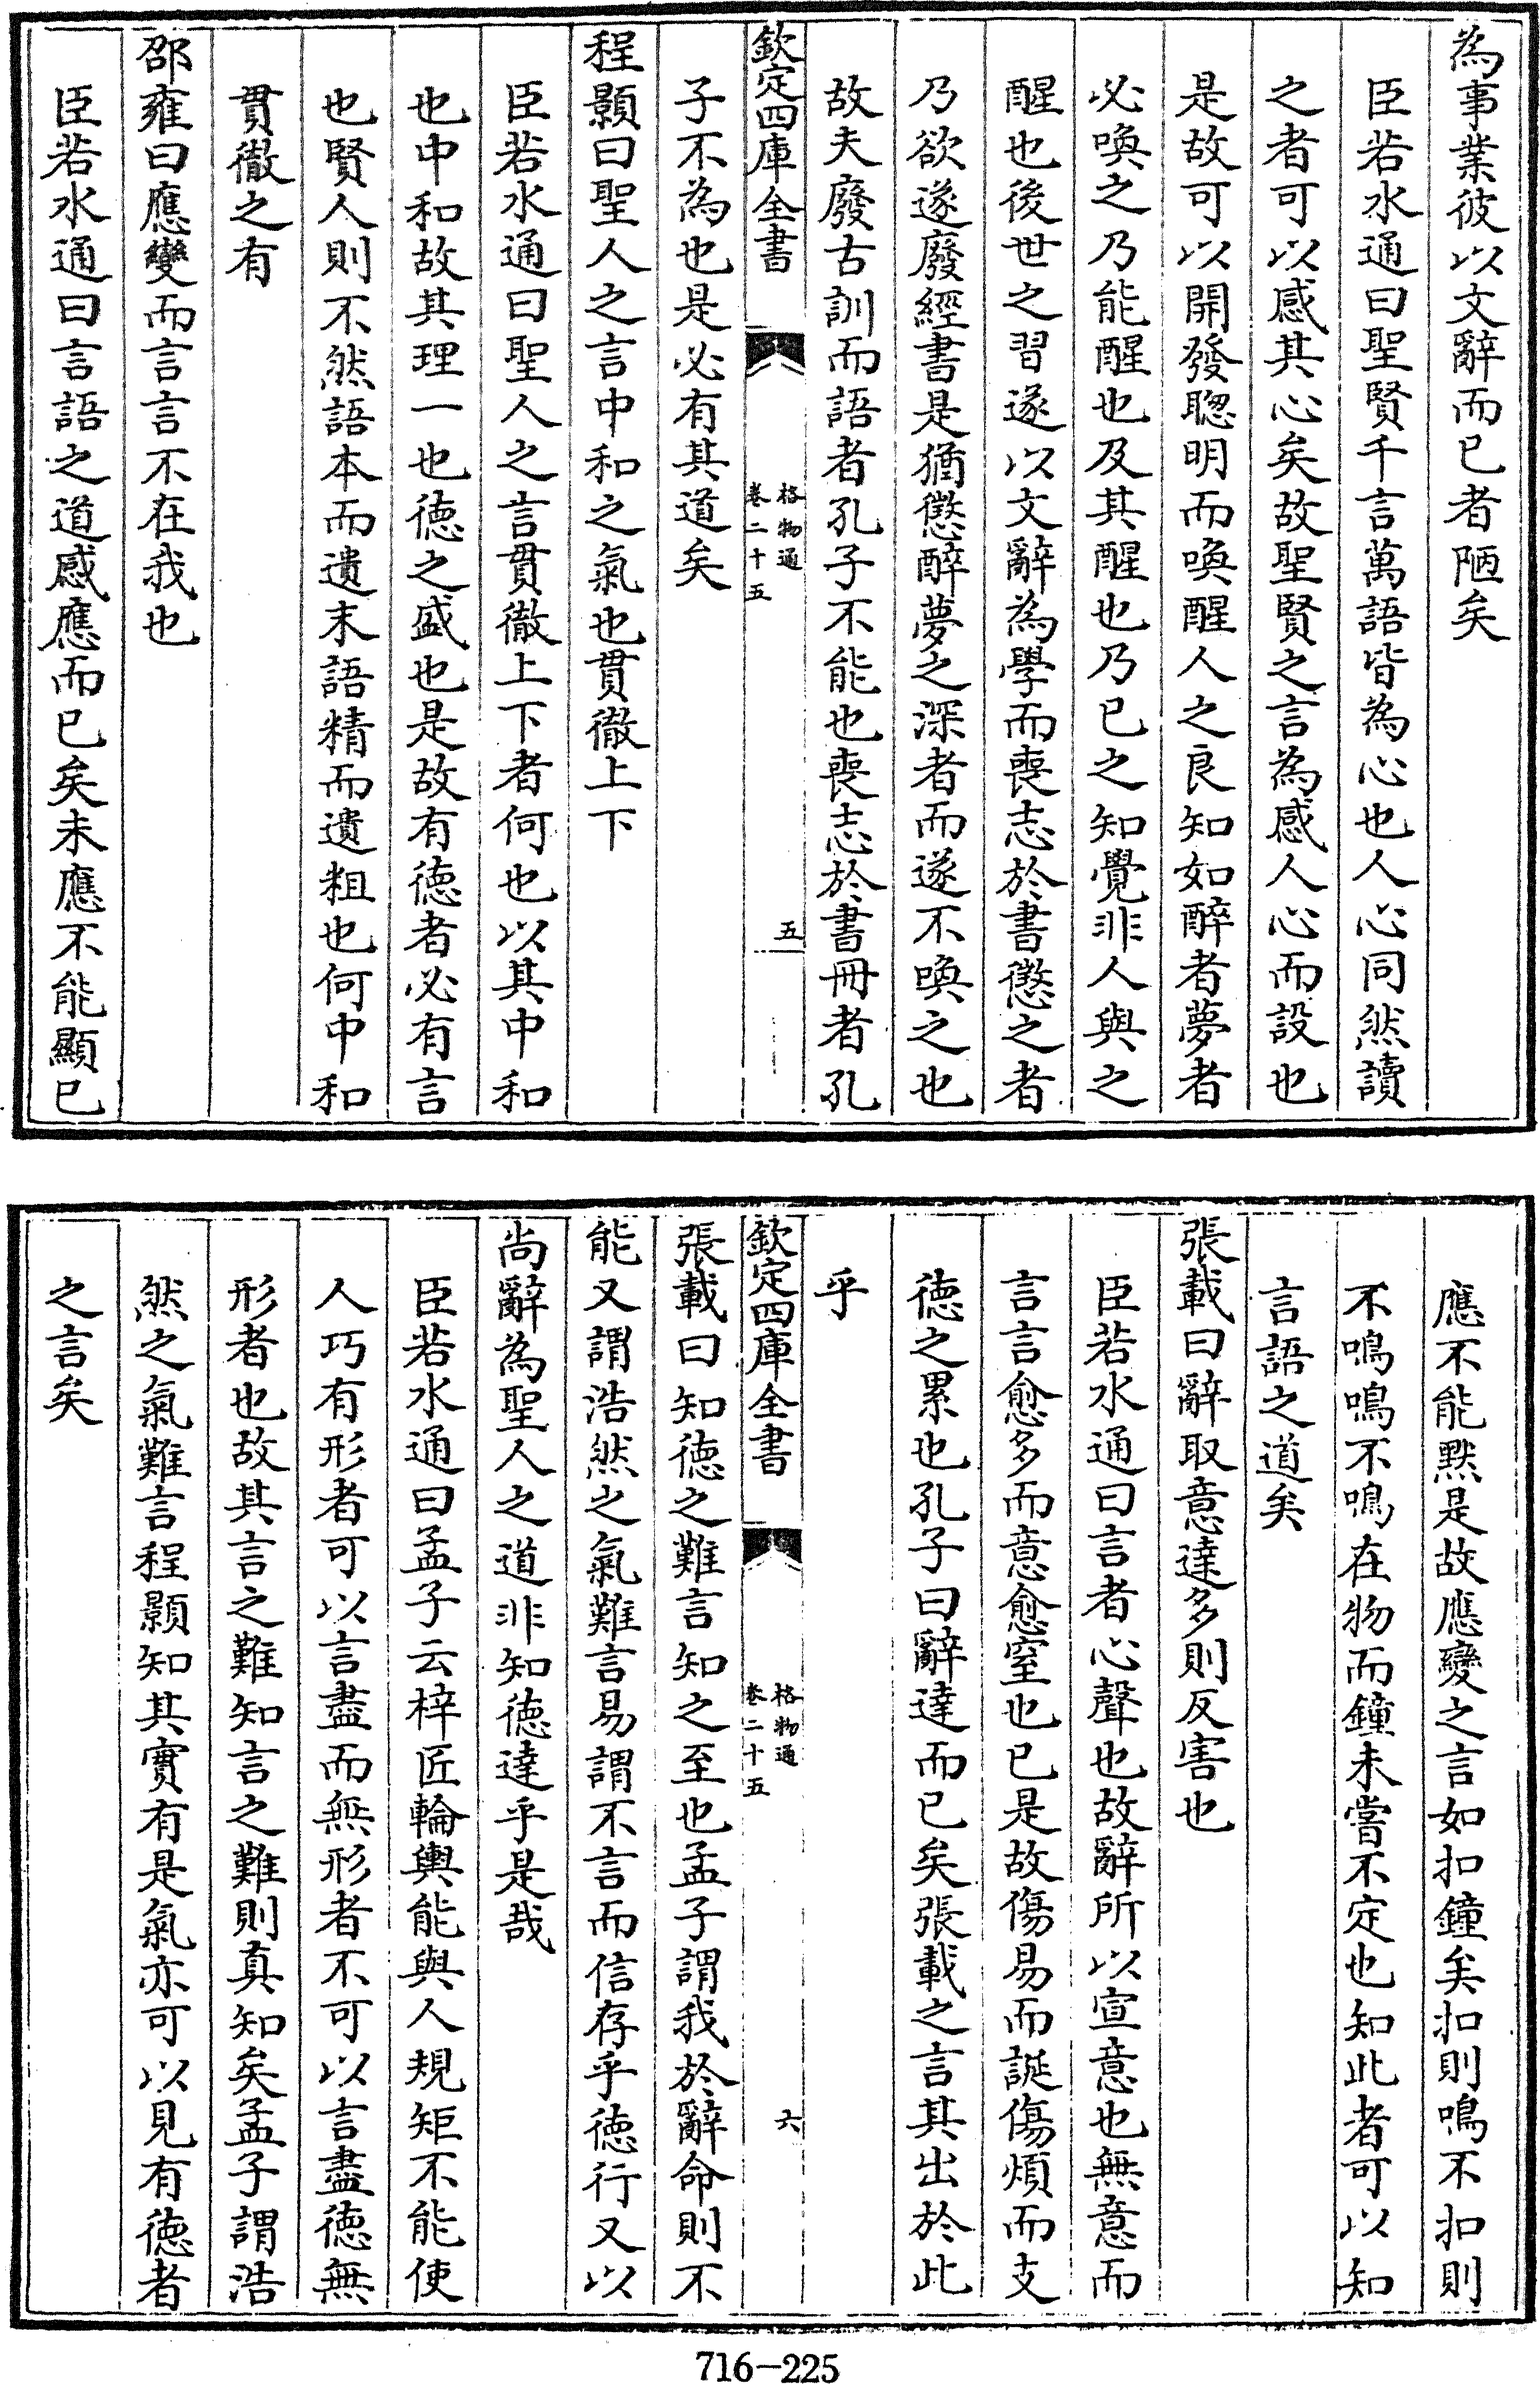 為事業彼以文辭而已者陋矣
臣若水通曰聖賢千言萬語皆為心也人心同然讀
之者可以感其心矣故聖賢之言為感人心而設也
是故可以開發聰明而喚醒人之良知如醉者夢者
必喚之乃能醒也及其醒也乃已之知覺非人與之
醒也後世之習遂以文辭為學而喪志於書懲之者
乃欲遂廢經書是猶懲醉夢之深者而遂不喚之也
故夫廢古訓而語者孔子不能也喪志於書冊者孔
欽定四庫全書
格物通
卷二十五
五
子不為也是必有其道矣
程顥曰聖人之言中和之氣也貫徹上下
臣若水通曰聖人之言貫徹上下者何也以其中和
也中和故其理一也徳之盛也是故有徳者必有言
也賢人則不然語本而遺末語精而遺粗也何中和
貫徹之有
邵雍曰應變而言言不在我也
臣若水通曰言語之道感應而已矣未應不能顯已
應不能黙是故應變之言如扣鐘矣扣則鳴不扣則
不鳴鳴不鳴在物而鐘未嘗不定也知此者可以知
言語之道矣
張載曰辭取意達多則反害也
臣若水通曰言者心聲也故辭所以宣意也無意而
言言愈多而意愈窒也已是故傷易而誕傷煩而支
徳之累也孔子曰辭達而已矣張載之言其出於此
乎
欽定四庫全書
格物通
卷二十五
六
張載曰知徳之難言知之至也孟子謂我於辭命則不
能又謂浩然之氣難言易謂不言而信存乎徳行又以
尚辭為聖人之道非知徳達乎是哉
臣若水通曰孟子云梓匠輪輿能與人規矩不能使
人巧有形者可以言盡而無形者不可以言盡徳無
形者也故其言之難知言之難則真知矣孟子謂浩
然之氣難言程顥知其實有是氣亦可以見有徳者
之言矣
716-225